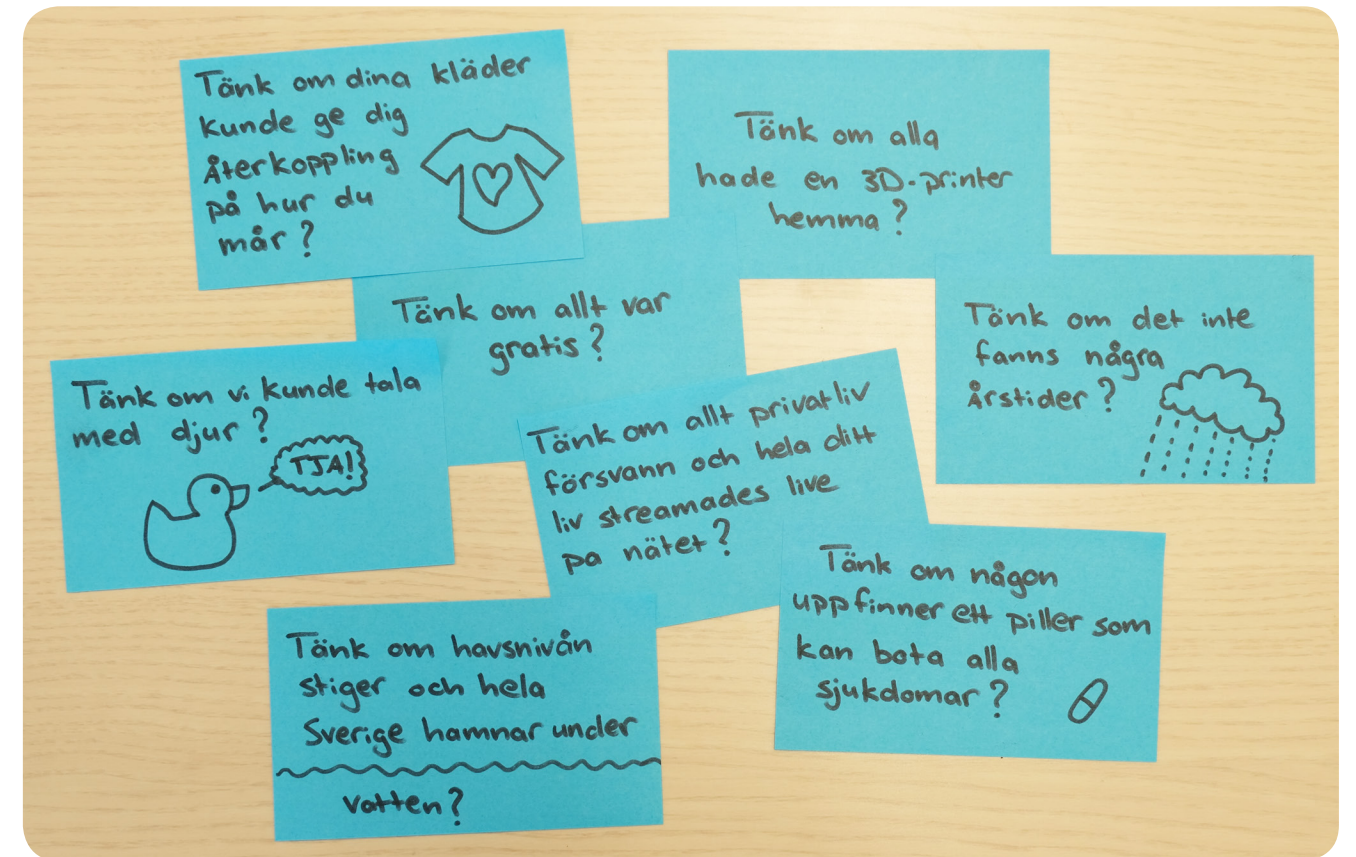 Tänk om dina kläder
kunde ge dig
återkoppling
på hur du
mår?
Tänk om alla
hade en 3D-printer
hemma?
Tänk om allt var
gratis?
Tänk om det inte
fanns några
årstider?
Tänk om vi kunde tala
med djur?
TJA!
Tänk om allt privatliv
försvann och hela ditt
liv streamades live
pa nätet?
Tänk om någon
uppfinner ett piller som
kan bota alla
sjukdomar?
Tänk om havsnivån
stiger och hela
Sverige hamnar under
vatten?